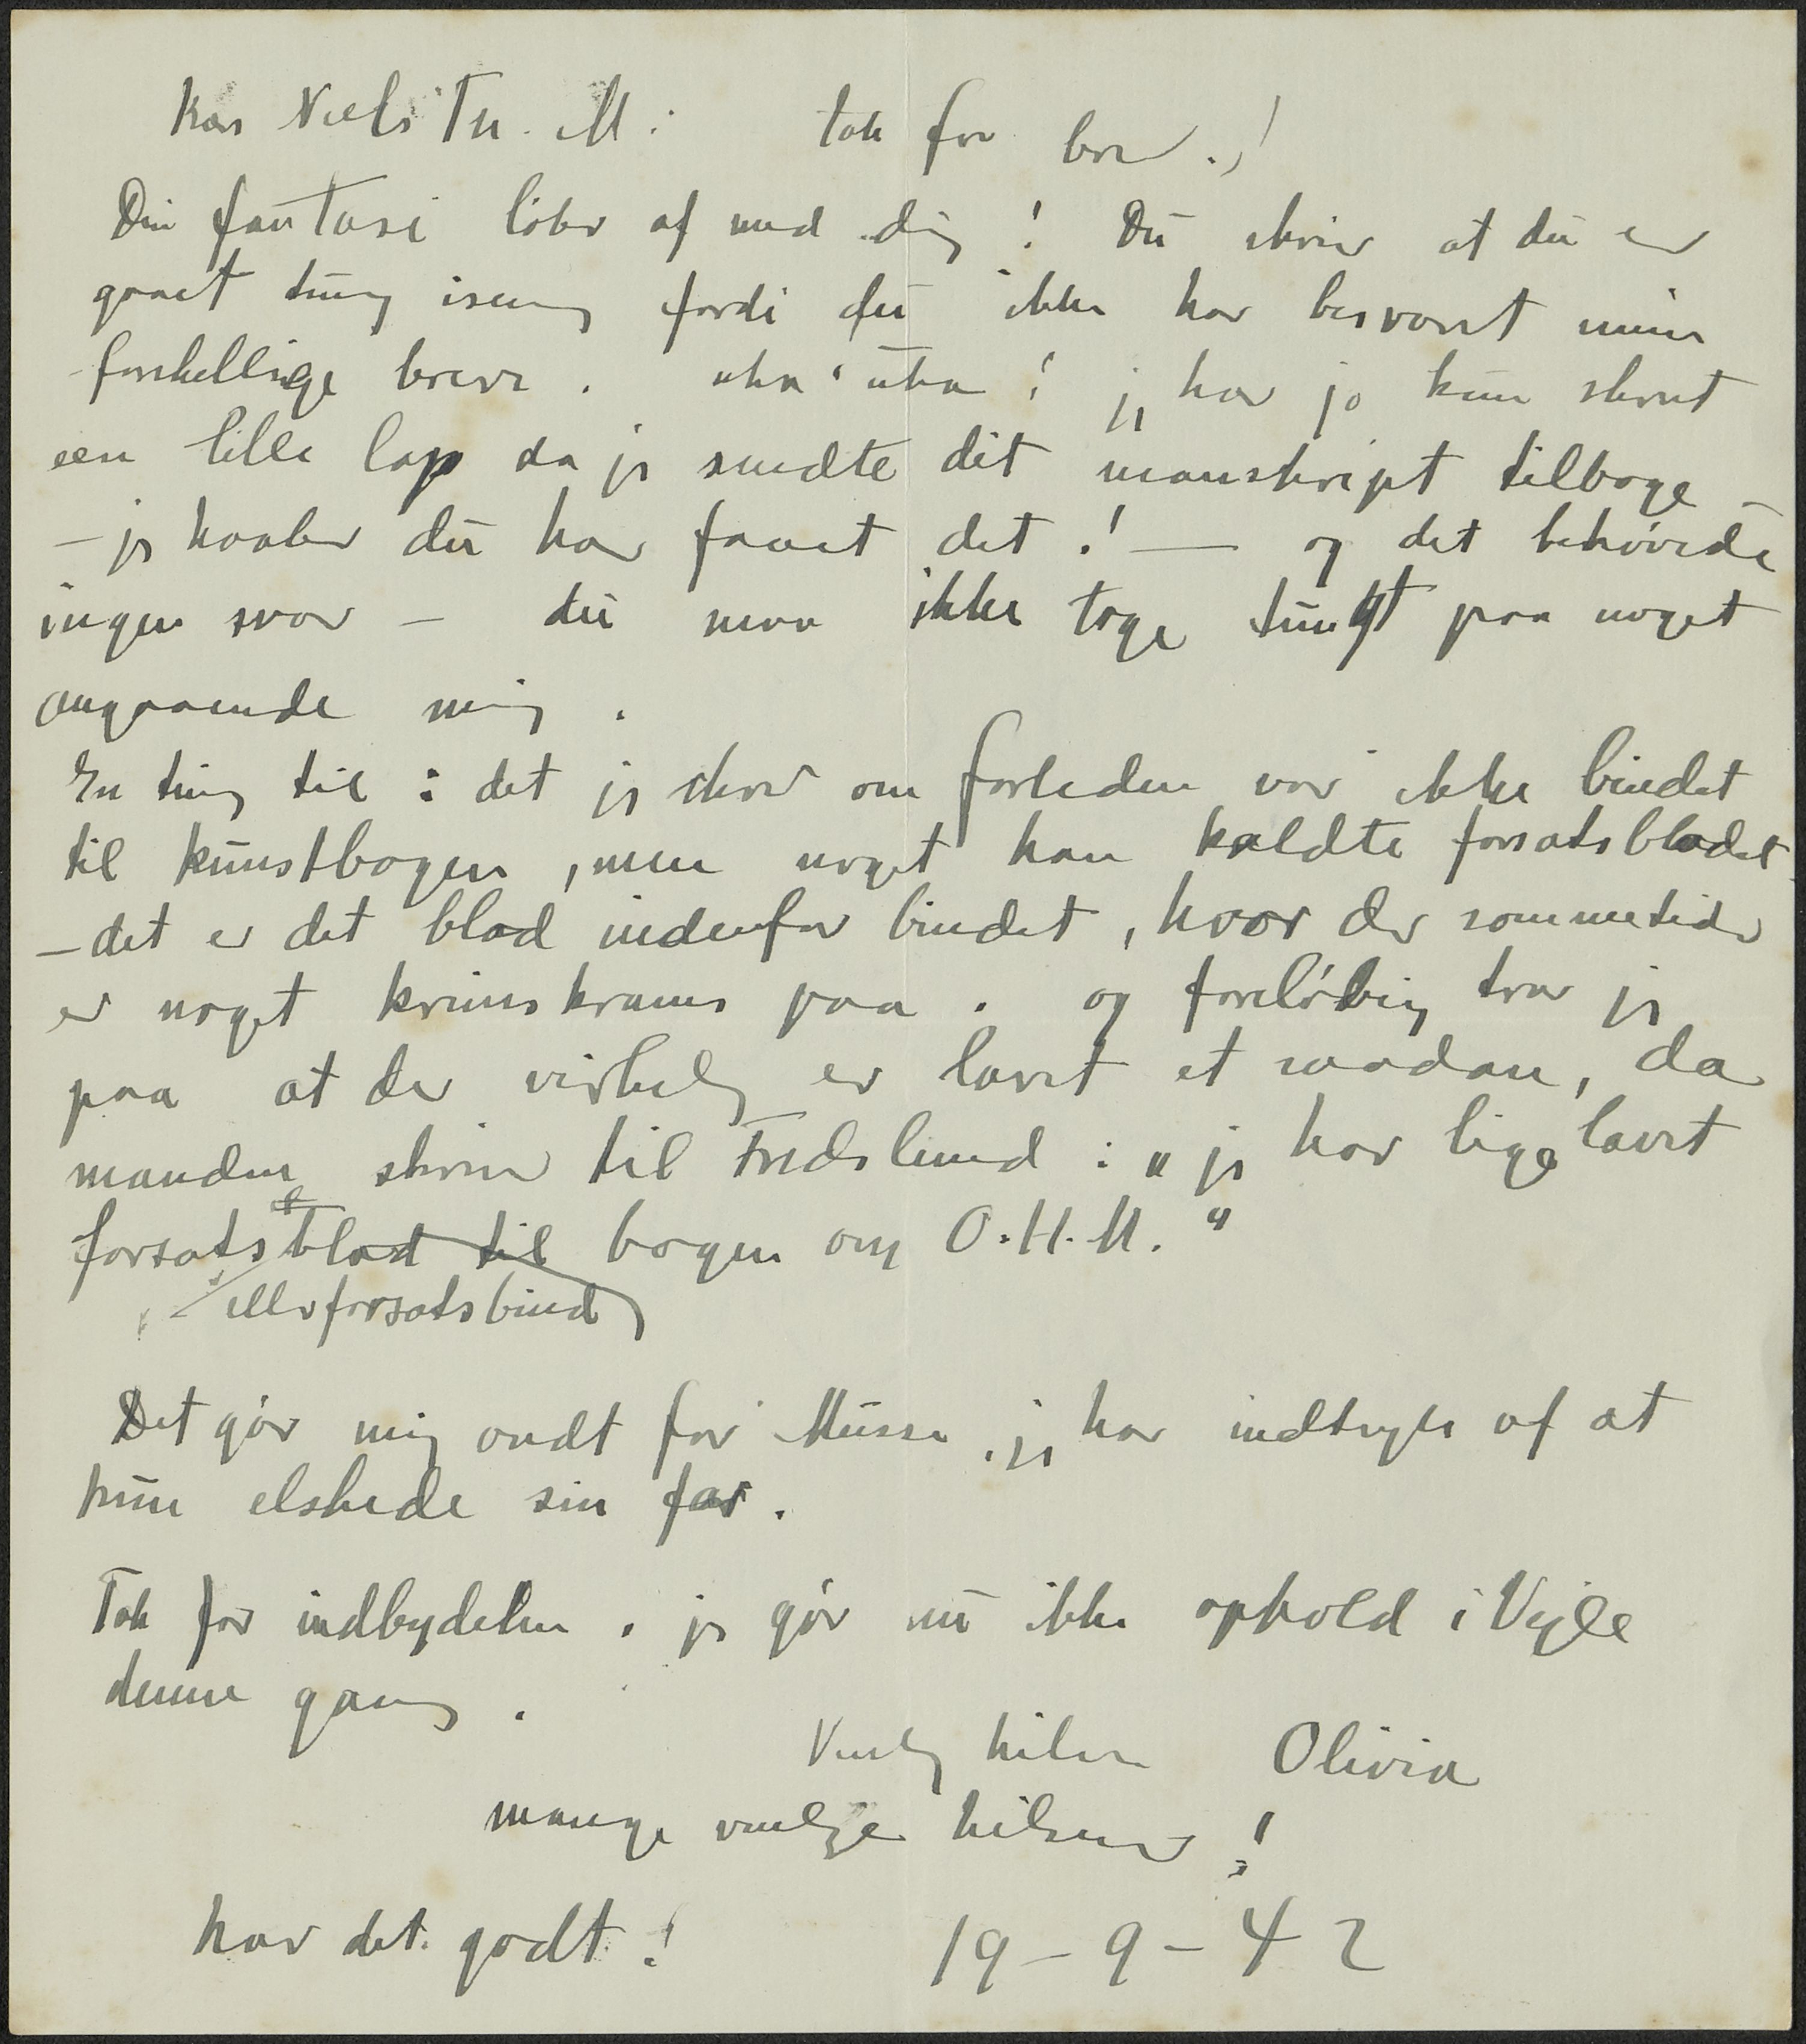 Kær Niels Th. M: tak for brev.!
Din fantasi løber af med dig! Du skriver at du er
gaaet tung iseng fordi du ikke har besvaret mine
forskellige breve. uha! uha! jeg har jo kun skrevet
een lille lap da jeg sendte dit manskript tilbage –
– jeg haaber du har faaet det! — og det behøvede
ingen svar – du maa ikke tage tungt paa noget
angaaende mig.
En ting til: det jeg skrev om forleden var ikke bindet
til kunstbogen, men noget han kaldte forsatsbladet
– det er det blad indenfor bindet, hvor der sommetider
er noget krimskrams paa. og foreløbig tror jeg
paa at der virkelig er lavet et saadan, da
manden skriver til Fredslund: „jeg har lige lavet
forsatsblad til bogen om O.H.M."
eller forsatsbind
Det gør mig ondt for Musse, jeg har indtryk af at
hun elskede sin far.
Tak for indbydelsen. jeg gør nu ikke ophold i Vejle
denne gang.
Venlig hilsen Olivia
mange venlige hilsener!
hav det godt! 19-9-42